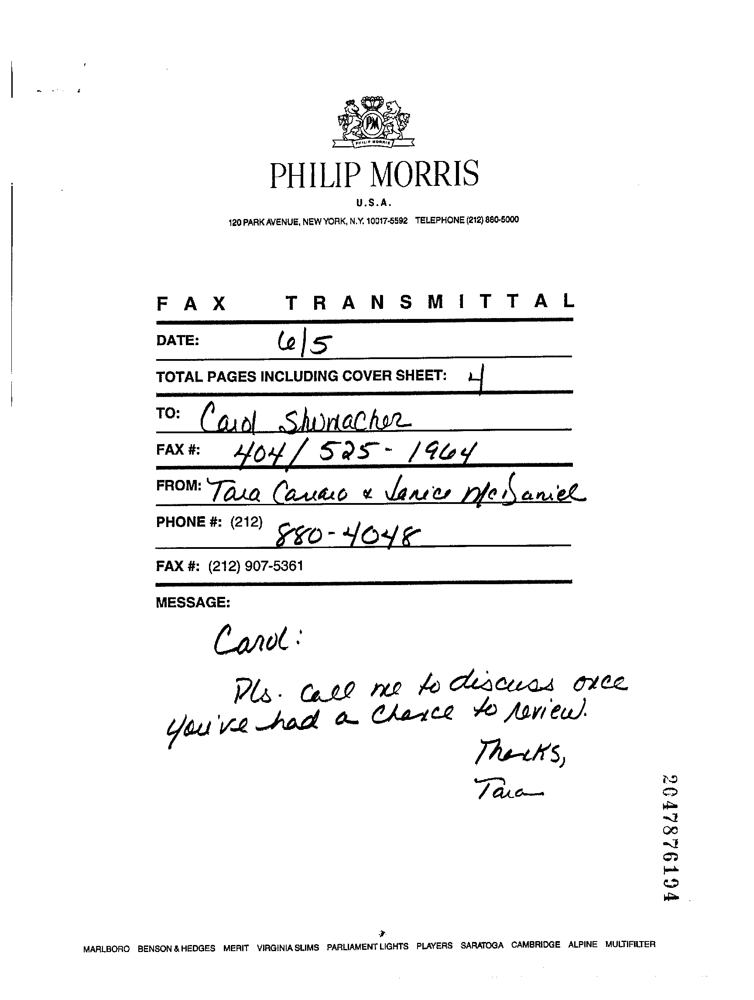 PM
PHILIP MORRIS
PHILIP MORRIS
U.S.A.
120 PARK AVENUE, NEW YORK, N.Y. 10017-5592 TELEPHONE (212) 880-5000
FAX TRANSMITTAL
DATE: 6/5
TOTAL PAGES INCLUDING COVER SHEET: 4
TO: Carol Shumacher
FAX #: 404/525-1964
FROM: Tara Carraro & Janice McDaniel
PHONE #: (212) 880-4048
FAX #: (212) 907-5361
MESSAGE:
Carol:
Pls. call me to discuss once
you've had a chance to review.
Thanks,
Tara
2047876194
MARLBORO BENSON & HEDGES MERIT VIRGINIA SLIMS PARLIAMENT LIGHTS PLAYERS SARATOGA CAMBRIDGE ALPINE MULTIFILTER